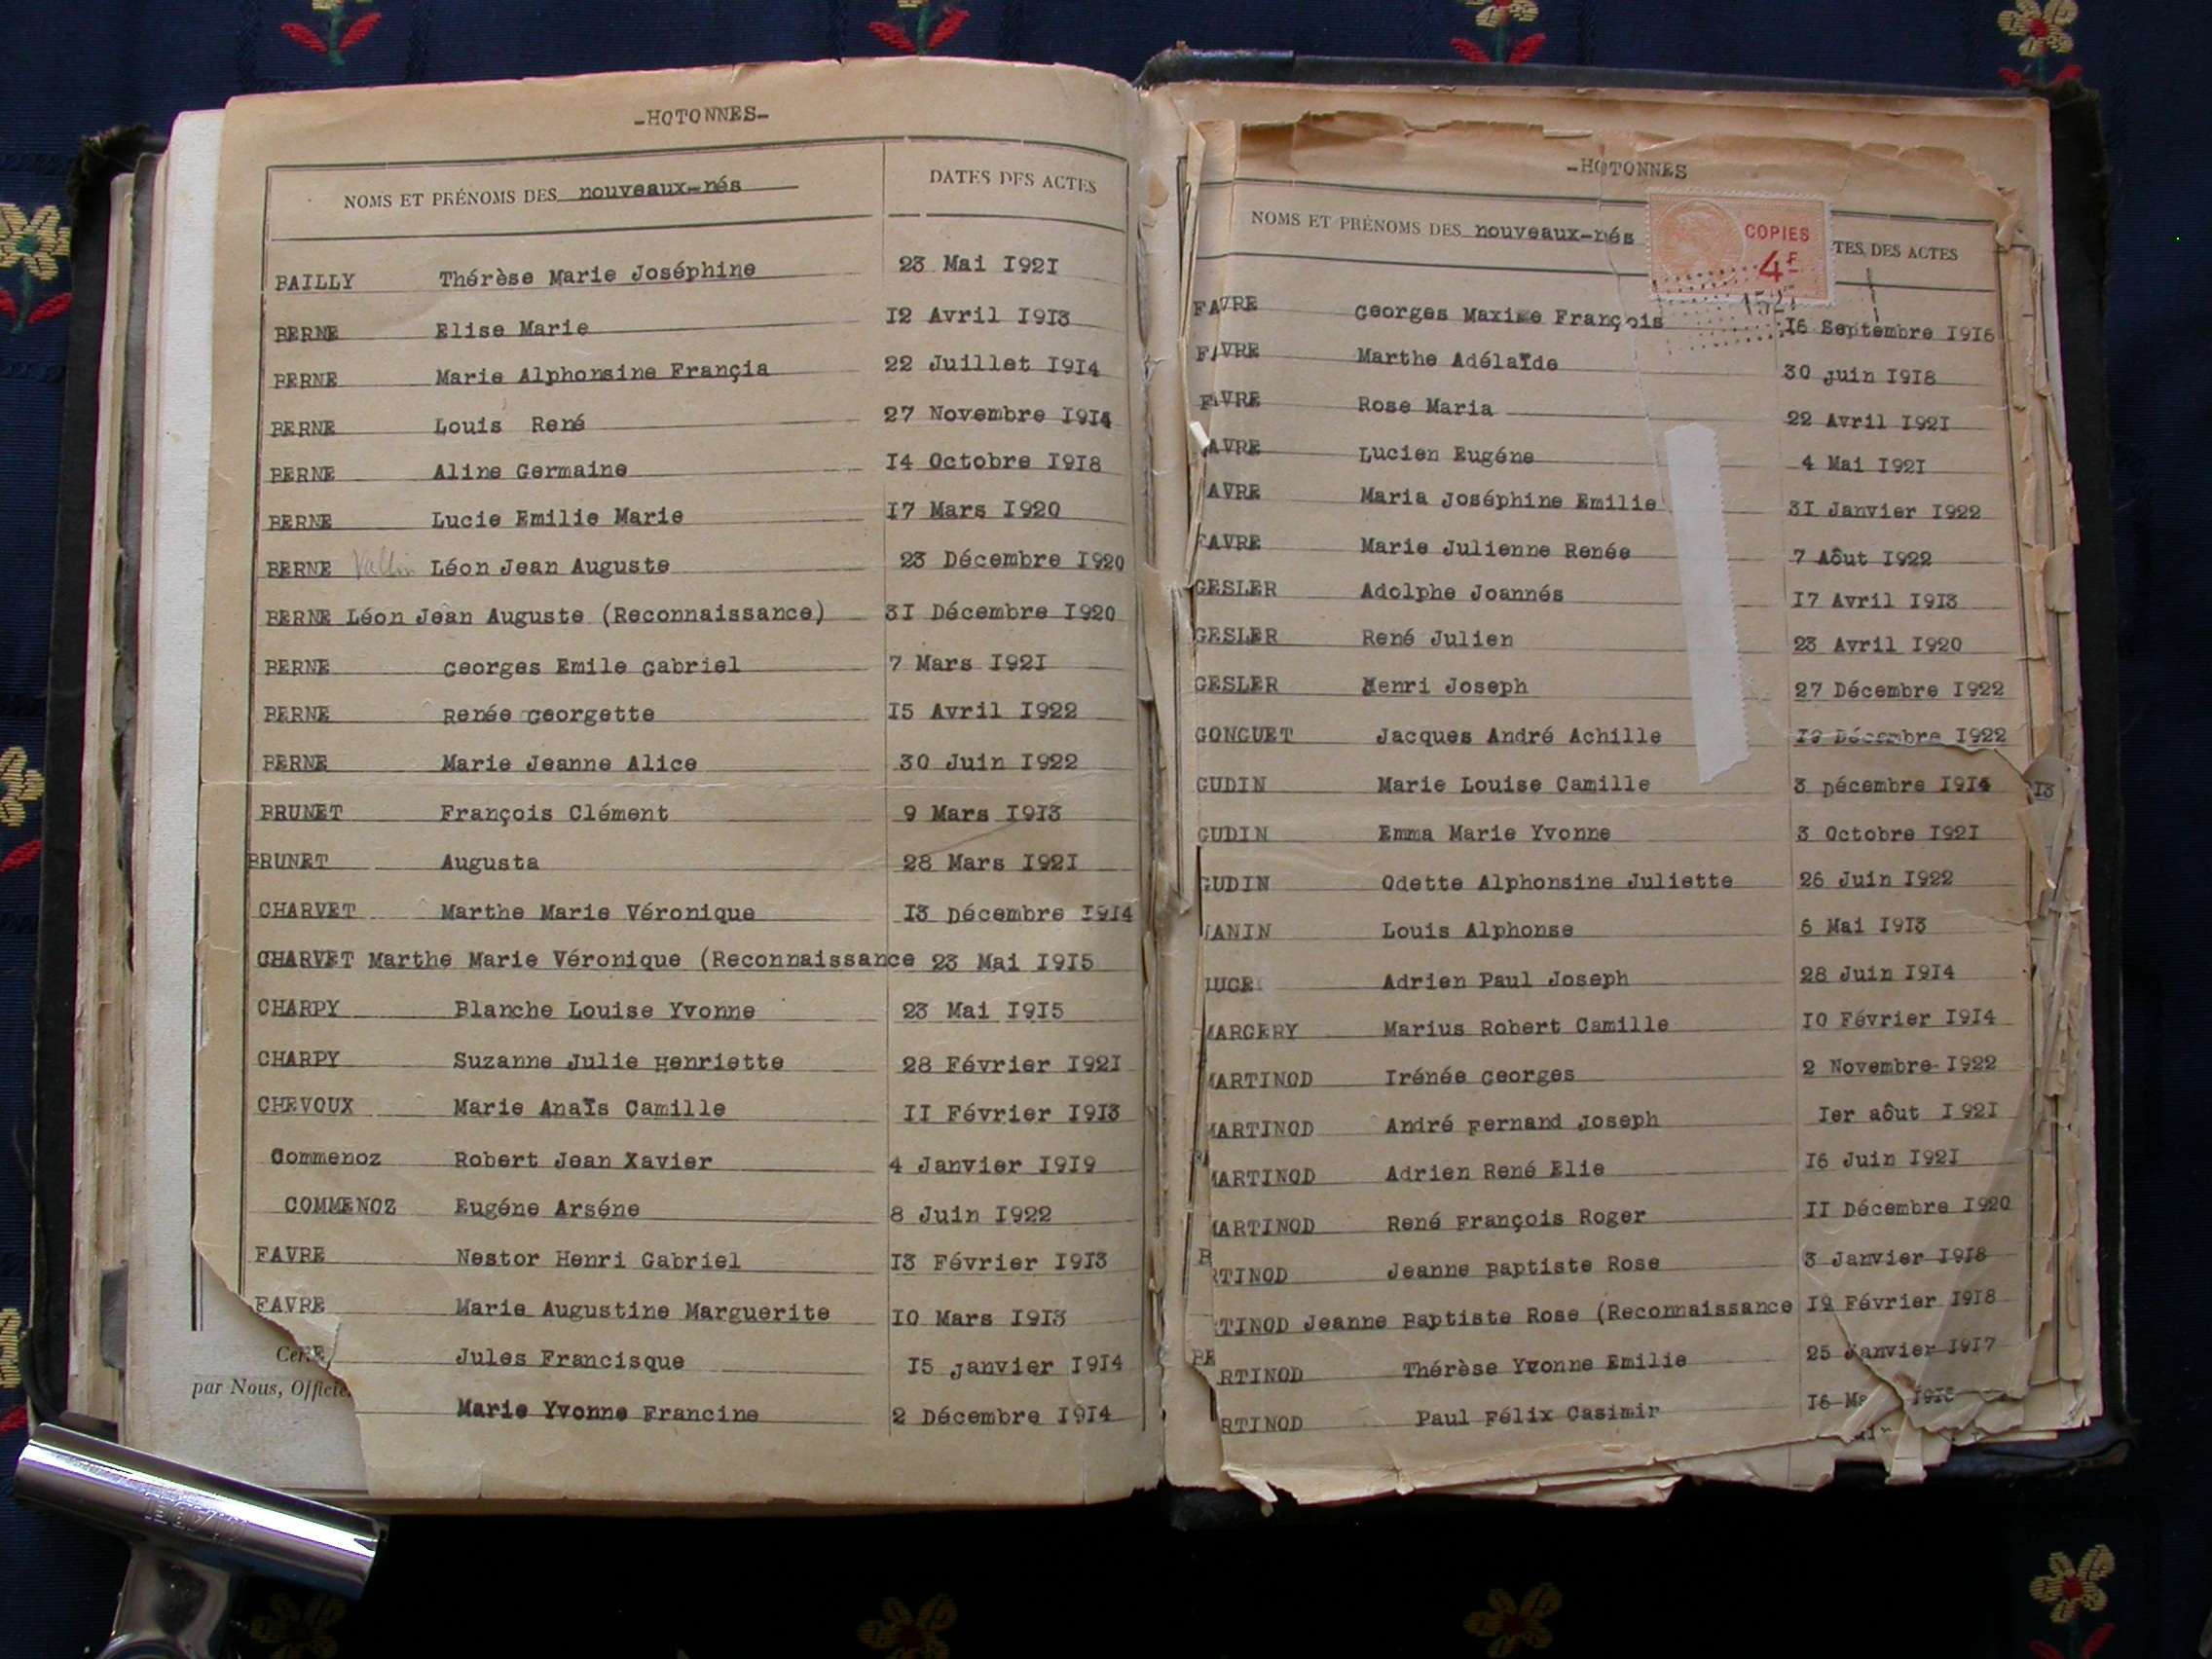 -HOTONNES-
NOMS ET PRÉNOMS DES nouveaux-nés DATES DES ACTES
BAILLY Thérèse Marie Joséphine 23 Mai I92I
BERNE Elise Marie I2 Avril I9I3
BERNE Marie Alphonsine Françia 22 Juillet I9I4
BERNE Louis René 27 Novembre I9I4
BERNE Aline Germaine I4 Octobre I9I8
BERNE Lucie Emilie Marie I7 Mars I920
BERNE Vallin Léon Jean Auguste 23 Décembre I920
BERNE Léon Jean Auguste (Reconnaissance) 3I Décembre I920
BERNE Georges Emile Gabriel 7 Mars I92I
BERNE Renée Georgette I5 Avril I922
BERNE Marie Jeanne Alice 30 Juin I922
BRUNET François Clément 9 Mars I9I3
BRUNET Augusta 28 Mars I92I
CHARVET Marthe Marie Véronique I3 Décembre I9I4
CHARVET Marthe Marie Véronique (Reconnaissance 23 Mai I9I5
CHARPY Blanche Louise Yvonne 23 Mai I9I5
CHARPY Suzanne Julie Henriette 28 Février I92I
CHEVOUX Marie Anaïs Camille II Février I9I3
Commenoz Robert Jean Xavier 4 Janvier I9I9
COMMENOZ Eugéne Arséne 8 Juin I922
FAVRE Nestor Henri Gabriel I3 Février I9I3
FAVRE Marie Augustine Marguerite I0 Mars I9I3
Cer RE Jules Francisque I5 Janvier I9I4
par Nous, Officie
Marie Yvonne Francine 2 Décembre I9I4
-HOTONNES
NOMS ET PRÉNOMS DES nouveaux-nés TES DES ACTES
COPIES
4F
FAVRE Georges Maxime François I6 Septembre I9I6
FAVRE Marthe Adélaïde 30 Juin I9I8
FAVRE Rose Maria 22 Avril I92I
AVRE Lucien Eugéne 4 Mai I92I
AVRE Maria Joséphine Emilie 3I Janvier I922
FAVRE Marie Julienne Renée 7 Aôut I922
GESLER Adolphe Joannés I7 Avril I9I3
GESLER René Julien 23 Avril I920
GESLER Henri Joseph 27 Décembre I922
GONGUET Jacques André Achille I9 Décembre I922
GUDIN Marie Louise Camille 3 Décembre I9I4
I3
GUDIN Emma Marie Yvonne 3 Octobre I92I
GUDIN Odette Alphonsine Juliette 26 Juin I922
ANIN Louis Alphonse 6 Mai I9I3
LUCE Adrien Paul Joseph 28 Juin I9I4
MARGERY Marius Robert Camille I0 Février I9I4
MARTINOD Irénée Georges 2 Novembre I922
MARTINOD André Fernand Joseph Ier aôut I92I
MARTINOD Adrien René Elie I6 Juin I92I
MARTINOD René François Roger II Décembre I920
RTINOD Jeanne Baptiste Rose 3 Janvier I9I8
TINOD Jeanne Baptiste Rose (Reconnaissance I9 Février I9I8
RTINOD Thérèse Yvonne Emilie 25 Janvier I9I7
RTINOD Paul Félix Casimir I6 Ma